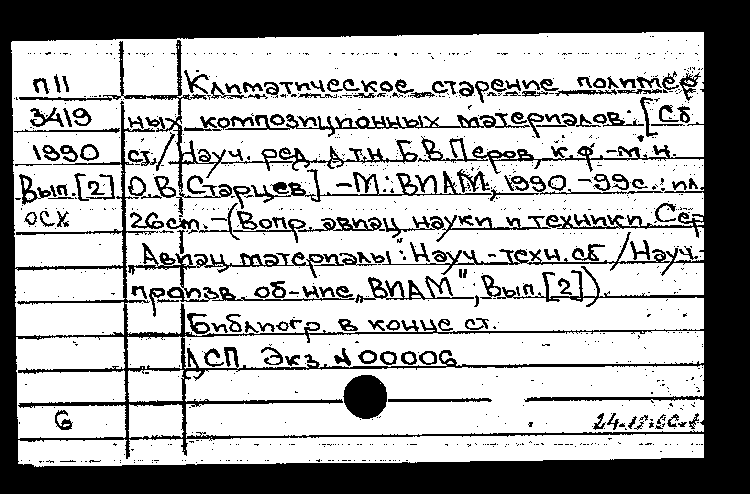 П11 Климатическое старение полимер
3419 ных композиционных материалов: [Сб
1990 ст./Науч. ред. д.т.н. Б.В.Перов, к.ф.-м.н.
Вып.[2] О.В.Старцев]. -М.: ВИАМ, 1990. -99с.: ил.
ОСХ 26см. -(Вопр. авиац. науки и техники. Сер
„Авиац. материалы": Науч.-техн. сб /Науч.-
произв. об-ние „ВИАМ"; Вып.[2]).
Библиогр. в конце ст.
ДСП. Экз. N 00006
6